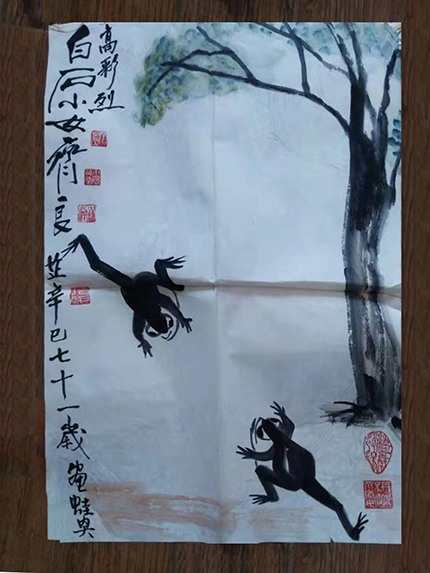 白石小女齊良芷辛巳七十一歲畫蛙興
高彩烈